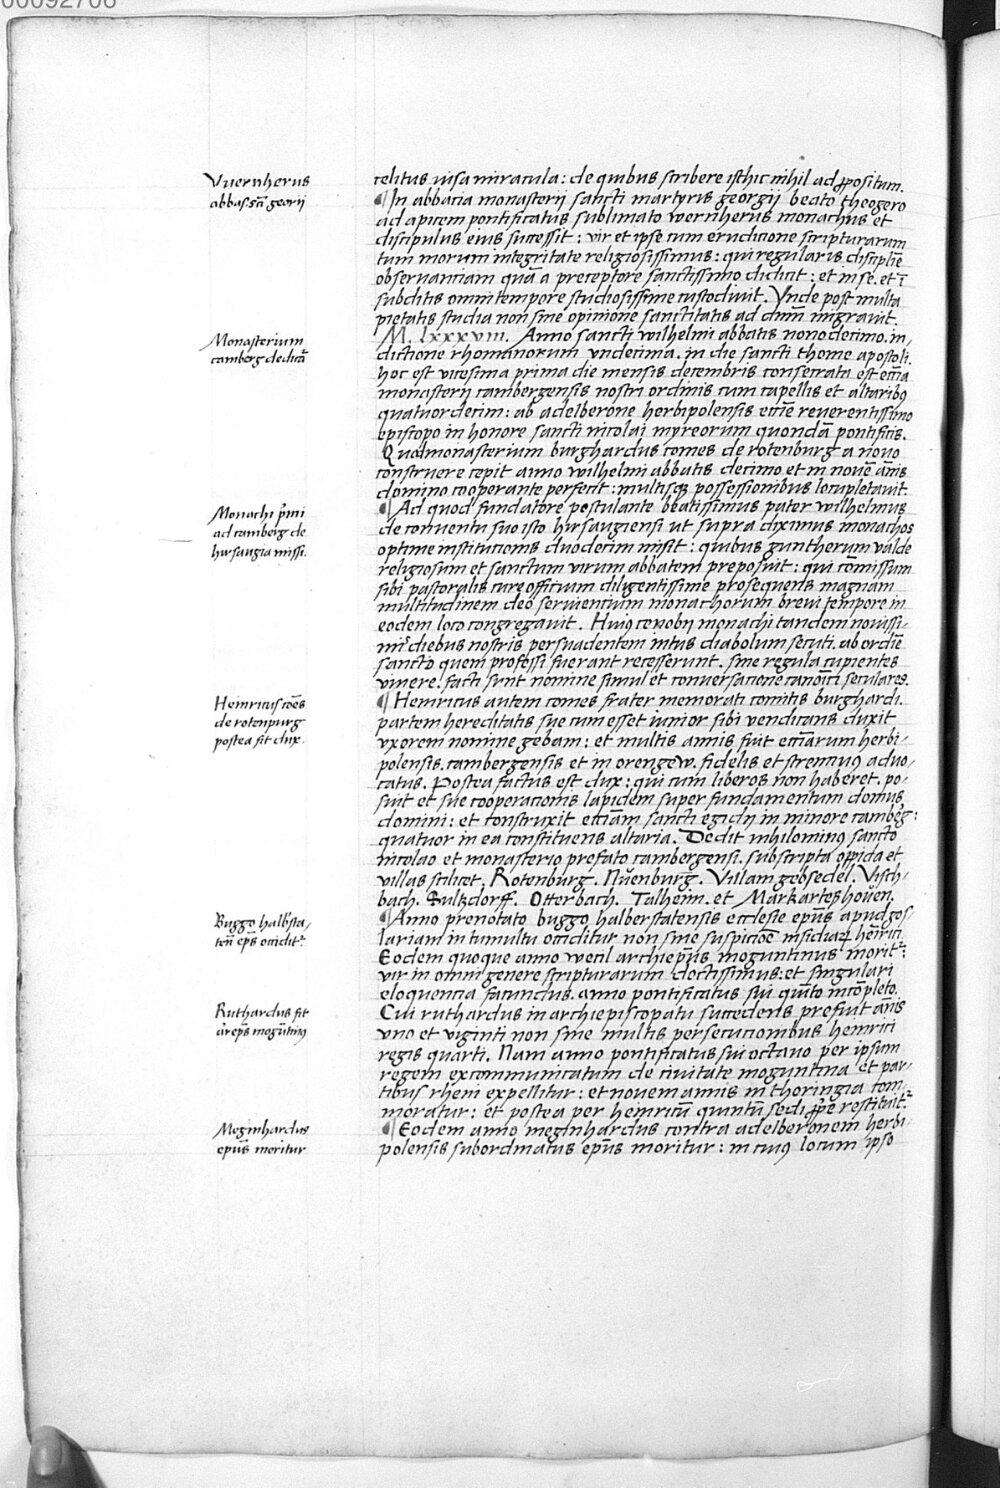 00092706
Vuernherus
abbas scī georii
celitus uisa miracula : de quibus scribere isthic nihil ad ꝓpositum.
¶ In abbatia monasterii sancti martyris georgii beato theogero
ad apicem pontificatus sublimato wernherus monachus et
discipulus eius successit : vir et ipse cum eruditione scripturarum
tum morum integritate religiosissimus : qui regularis disciplīe
obseruantiam quā a preceptore sanctissimo didicit : et in se. et ī
subditis omni tempore studiosissime custodiuit. Vnde post multa
pietatis studia non sine opinione sanctitatis ad dnm̄ migrauit.
Monasterium
camberg dedicā
M. lxxxviii. Anno sancti wilhelmi abbatis nonodecimo. in,
dictione rhomanorum vndecima. in die sancti thome apostoli.
hoc est vicesima prima die mensis decembris consecrata est ecc̄ia
monasterii cambergensis nostri ordinis cum capellis et altaribꝰ
quatuordecim : ab adelberone herbipolensis ecc̄ie reuerentissimo
episcopo in honore sancti nicolai myreorum quondā pontificis.
Quod monasterium burghardus comes de rotenburg a nouo
construere cepit anno wilhelmi abbatis decimo et in nouē ānis
domino cooperante perfecit : multisqꝫ possessionibus locupletauit.
Monachi p̄mi
ad camberg de
hirsaugia missi.
¶ Ad quod fundatore postulante beatissimus pater wilhelmus
de conuentu suo isto hirsaugiensi ut supra diximus monachos
optime institutionis duodecim misit : quibus guntherum valde
religiosum et sanctum virum abbatem preposuit : qui cōmissum
sibi pastoralis cure officium diligentissime prosequens magnam
multitudinem deo seruientium monachorum breui tempore in
eodem loco congregauit. Huiꝰ cenobii monachi tandem nouissi-
mis diebus nostris persuadentem intus diabolum secuti. ab ordīe
sancto quem professi fuerant recesserunt. sine regula cupientes
viuere. facti sunt nomine simul et conuersatione canonici seculares.
Heinricus com̄es
de rotenpurg
postea fit dux.
¶ Heinricus autem comes frater memorati comitis burghardi.
partem hereditatis sue cum esset iunior sibi vendicans duxit
vxorem nomine gebam : et multis annis fuit ecc̄iarum herbi-
polensis. cambergensis et in orengew. fidelis et strennuus aduo-
catus. Postea factus est dux : qui cum liberos non haberet. po-
suit et sue cooperationis lapidem super fundamentum domus
domini : et construxit ecc̄iam sancti egidii in minore camberg :
quatuor in ea constituens altaria. Dedit nihilominus sancto
nicolao et monasterio prefato cambergensi. subscripta oppida et
villas scilicet. Rotenburg. Nuenburg. Villam gebsedel. Visch-
bach. Sultzdorff. Otterbach. Talheim. et Markartshouen.
Buggo halb'sta,
teñ ep̄s occidit.
¶ Anno prenotato buggo halberstatensis ecclesie ep̄us apud gos-
lariam in tumultu occiditur non sine suspicioe insidiaꝝ heinrici
Eodem quoque anno wecil archiep̄us moguntinus morit̄ :
vir in omni genere scripturarum doctissimus : et singulari
eloquentia facundus. anno pontificatus sui quīto incōpleto.
Ruthardus fit
ar̄ep̄s mogūtinꝰ
Cui ruthardus in archiepiscopatu succedens prefuit ānis
vno et viginti non sine multis persecutionibus heinrici
regis quarti. Nam anno pontificatus sui octauo per ipsum
regem excommunicatum de ciuitate moguntina et par-
tibus rheni expellitur : et nouem annis in thoringia com-
moratur : et postea per heinricū quintū sedi ꝓprie restituit̄.
Meginhardus
ep̄us moritur
¶ Eodem anno meginhardus contra adelberonem herbi-
polensis subordinatus ep̄us moritur : in cuiꝰ locum ipso